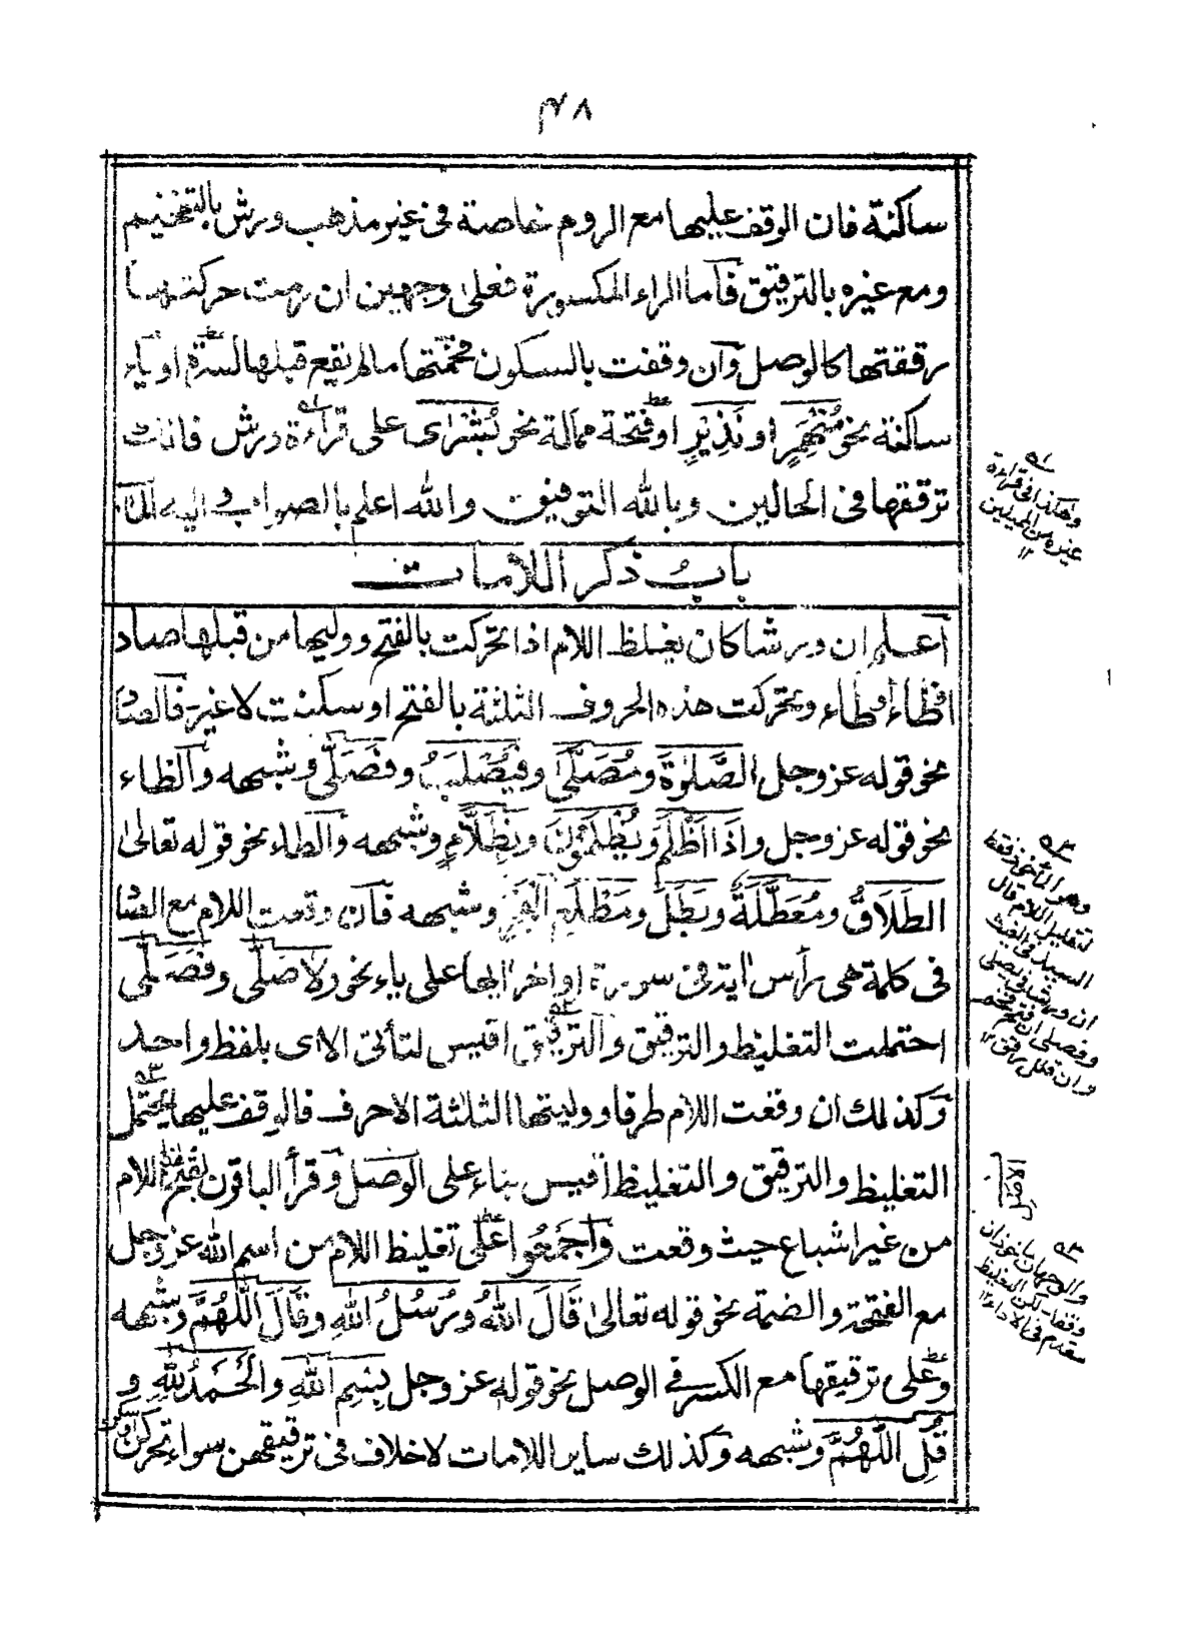 ٤٨
ساكنة فان الوقف عليها مع الروم خاصة فى غير مذهب ورش بالتفخيم
ومع غيره بالترقيق فآما الراء المكسورة فعلى وجهين ان رمت حركتها
رققتها كالوصل وآن وقفت بالسكون فخمتها مالم يقع قبلها كسرة او ياء
ساكنة نحو مُنْهَمِرٍ او نَذِيْرٍ او فتحة ممالة نحو بُشَرَاى على قراءة ورش فانك
ترققها فى الحالين وبالله التوفيق والله اعلم بالصواب و اليه
بابُ ذكر اللامات
آعلم ان ورشا كان يغلظ اللام اذا تحركت بالفتح ووليها من قبلها صاد
او ظاء او طاء وتحركت هذه الحروف الثلثة بالفتح او سكنت لا غير فآلصاد
نحو قوله عز وجل الصَّلٰوةَ ومُصَلًّى وفَيُصْلَبُ وفَصَلّٰى وشبهه وآلظاء
نحو قوله عز وجل واذَا اَظْلَمَ ويُظْلَمُوْنَ وبِظَلَّامٍ وشبهه وآلطاء نحو قوله تعالىٰ
الطَلَاقُ ومُعَطَّلَةٌ وبَطَلَ ومَطْلَعِ الْفَجْرِ وشبهه فآن وقعت اللام مع الصاد
فى كلمة هى رأس اية فى سورة اواخر ايها على ياء نحو ولاَ صَلّٰى وفَصَلّٰى
احتملت التغليظ والترقيق وآلترقيق اقيس لتأتى الاى بلفظ واحد
وكذلك ان وقعت اللام طرفا ووليتها الثلثة الاحرف فالوقف عليها يحتمل
التغليظ والترقيق والتغليظ أقيس بناء على الوصل وقرأ الباقون بفتح اللام
من غير اشباع حيث وقعت وآجمعوا على تغليظ اللام من اسم الله عز وجل
مع الفتحة والضمة نحو قوله تعالىٰ قَالَ اللهُ ورُسُلُ اللهِ وقَالَ اللّٰهُمَّ وشبهه
وعلى ترقيقها مع الكسر فى الوصل نحو قوله عز وجل بِسْمِ اللهِ والْحَمْدُ لِلّٰهِ و
قُلِ اللّٰهُمَّ وشبهه وكذلك ساير اللامات لا خلاف فى ترقيقهن سواء تحركن او سكن
وهكذا فى قراءة
غيره من المميلين
١٢
وهو المأخوذ فقد
لتقليل اللام قال
السيد فى الغيث
ان ورشا فى صلى
وفصلى ان فتح فخم
وان قلل رقق ١٢
الاصل
والوجهان ماخوذان
وقفا لكن التغليظ
مقدم فى الاداء ١٢